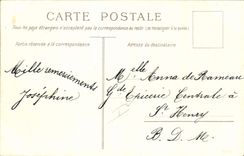 CARTE POSTALE
Tous les pays étrangers n'acceptent pas la correspondance au recto
Partie réservée à la correspondance
Adresse du destinataire
Mille remerciements
Joséphine
Melle Anna de Rameau
Gde Epicerie Centrale à
St Henry
B. D. M.